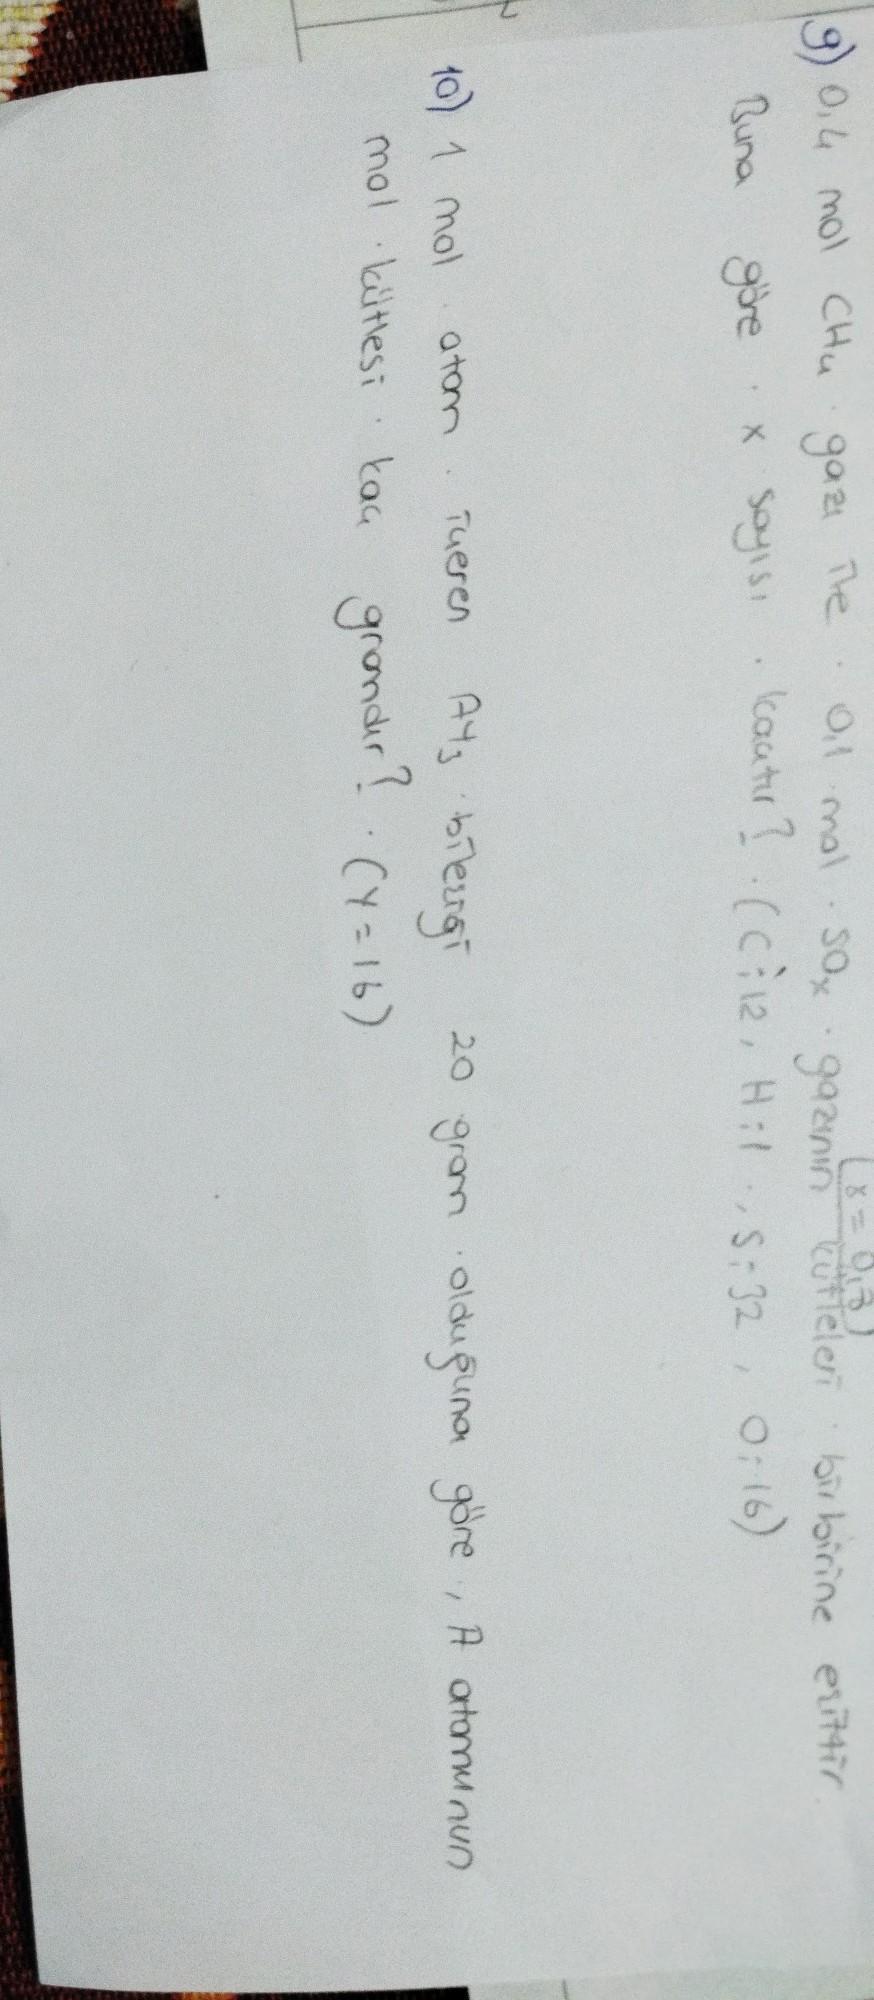 9) 0,4 mol CH₄ gazı ile 0,1 mol SOₓ gazının kütleleri birbirine eşittir.
Buna göre x sayısı kaçtır? (C:12, H:1, S:32, O:16)
10) 1 mol atom içeren AY₃ bileşiği 20 gram olduğuna göre, A atomunun
mol kütlesi kaç gramdır? (Y=16)